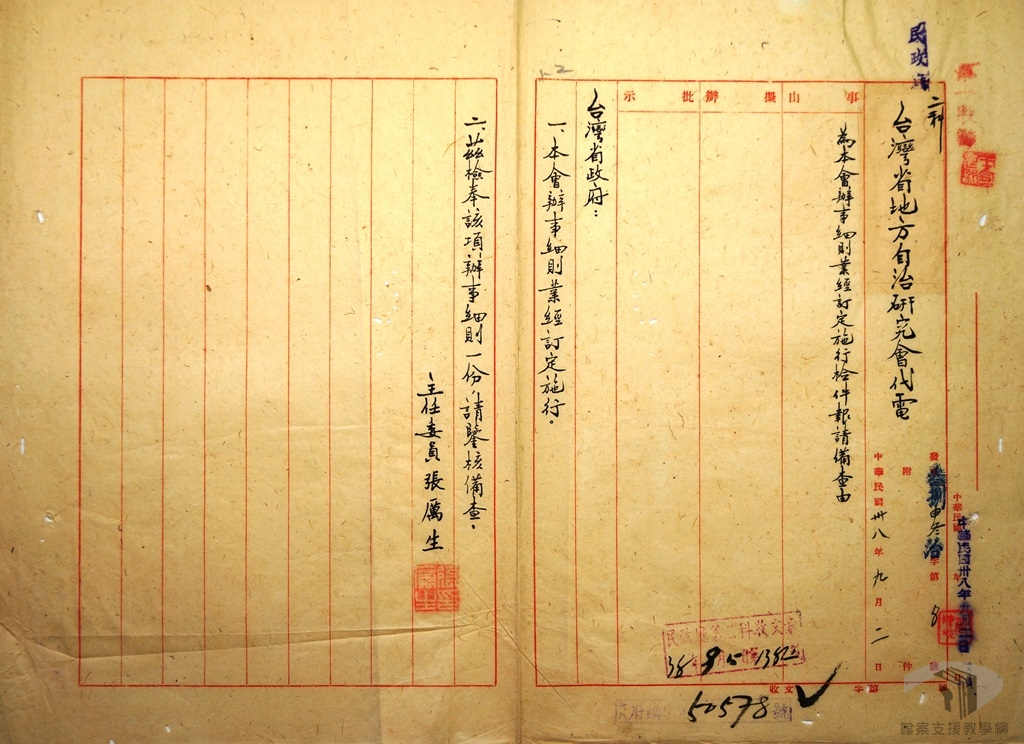 民政
二科
台灣省地方自治研究會代電
中華民國卅八年九月二日
附 件
事由 擬辦 批示
為本會辦事細則業經訂定施行檢件報請備查由
台灣省政府：
一、本會辦事細則業經訂定施行。
二、茲檢奉該項辦事細則一份，請鑒核備查。
主任委員 張厲生
張厲生
38 9 5
50578
檔案支援教學網